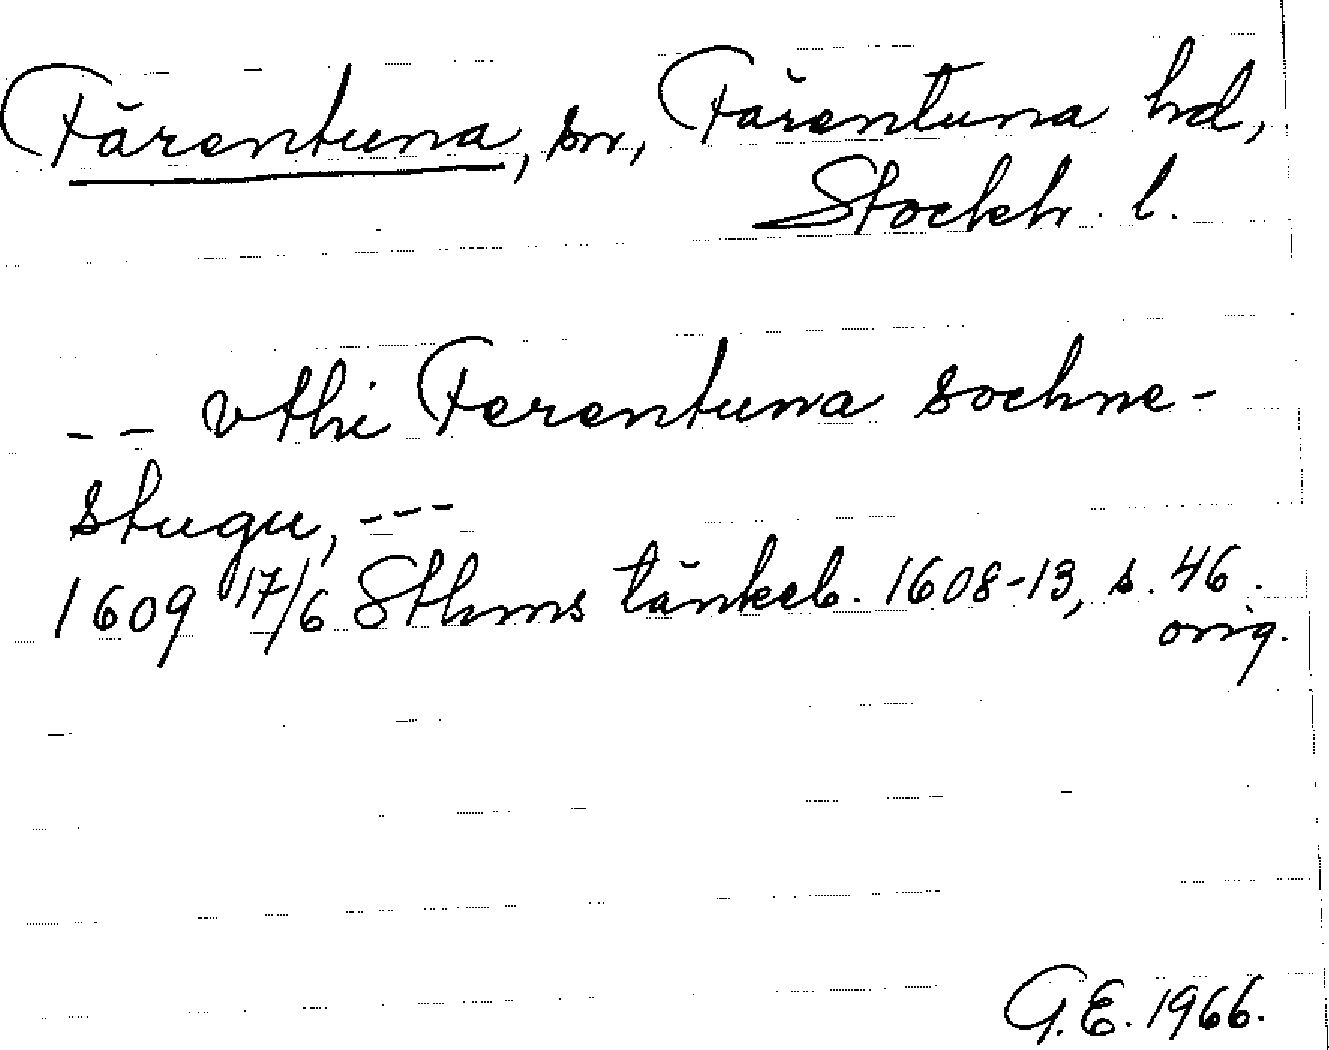 Färentuna, sn, Färentuna hd,
Stockh. l.
-- vthi Ferentuna sochne-
stugu, ---
1609 17/6 Sthms tänkeb. 1608-13, s. 46.
orig.
G.E. 1966.